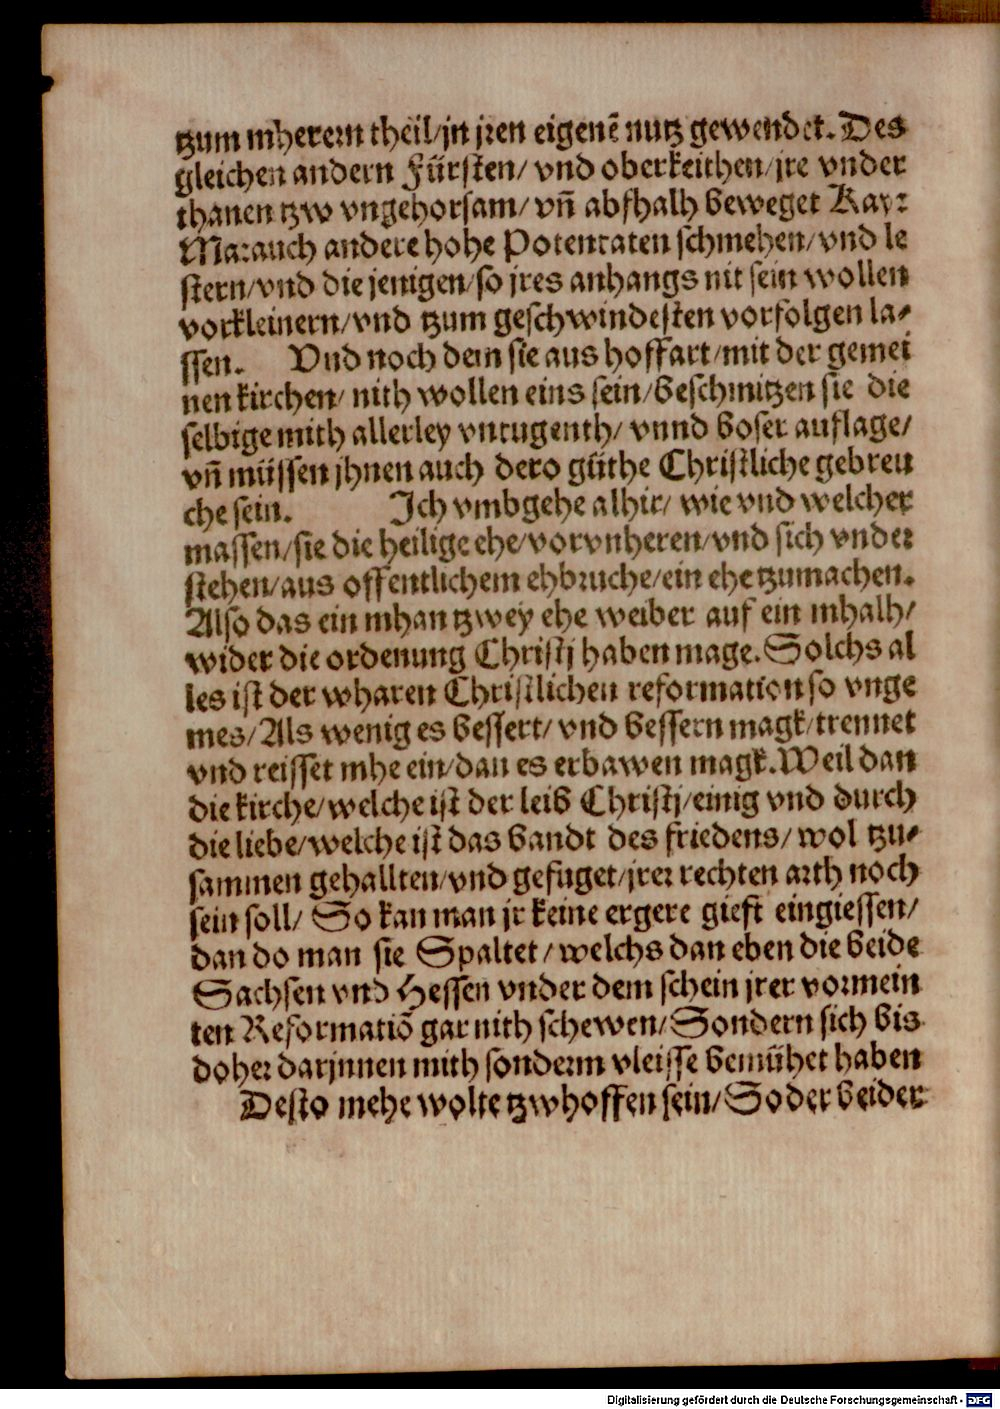 tzum mherern theil/jn jren eigenẽ nutz gewendet. Des
gleichen andern Fürsten/ vnd oberkeithen/jre vnder
thanen tzw vngehorsam/ vñ abfhalh beweget Kay:
Ma: auch andere hohe Potentaten schmehen/vnd le
stern/vnd die jenigen/so jres anhangs nit sein wollen
vorkleinern/vnd tzum geschwindesten vorfolgen la-
ssen. Vnd noch dem sie aus hoffart/mit der gemei
nen kirchen/ nith wollen eins sein/beschmitzen sie die
selbige mith allerley vntugenth/ vnnd boser auflage/
vñ müssen jhnen auch dero güthe Christliche gebreu
che sein. Ich vmbgehe alhir/ wie vnd welcher
massen/sie die heilige ehe/vorvnheren/vnd sich vnder
stehen/aus offentlichem ehbruche/ein ehe tzumachen.
Also das ein mhan tzwey ehe weiber auf ein mhalh/
wider die ordenung Christj haben mage. Solchs al
les ist der wharen Christlichen reformation so vnge
mes/Als wenig es bessert/ vnd bessern magk/trennet
vnd reisset mhe ein/dan es erbawen magk. Weil dan
die kirche/welche ist der leib Christj/einig vnd durch
die liebe/welche ist das bandt des friedens/ wol tzu-
sammen gehallten/vnd gefuget/jrer rechten arth noch
sein soll/ So kan man jr keine ergere gieft eingiessen/
dan do man sie Spaltet/welchs dan eben die beide
Sachsen vnd Hessen vnder dem schein jrer vormein
ten Reformatiõ gar nith schewen/Sondern sich bis
doher darjnnen mith sonderm vleisse bemühet haben
Desto mehe wolte tzwhoffen sein/So der beider
Digitalisierung gefördert durch die Deutsche Forschungsgemeinschaft - DFG